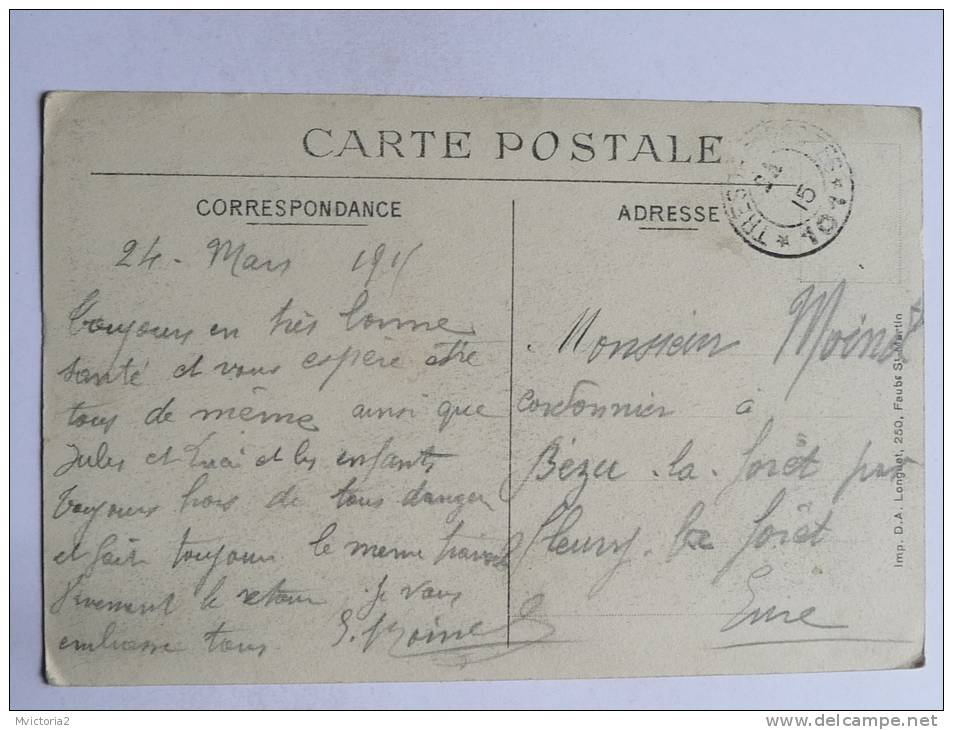 CARTE POSTALE
CORRESPONDANCE
ADRESSE
TRES
24
15
* 101 *
24 - Mars 1915
toujours en très bonne
santé et vous espère être
tous de même ainsi que
Jules et et les enfants
toujours hors de tous danger
et fait toujours le meme travail
Vivement le retour Je vous
embrasse tous E. Moinet
Monsieur Moinet
cordonnier à
Bézu-la-forêt par
fleury-la forêt
Eure
Imp. D.A. Longuet, 250, Faubg St-Martin
Mvictoria2
delcampe.net